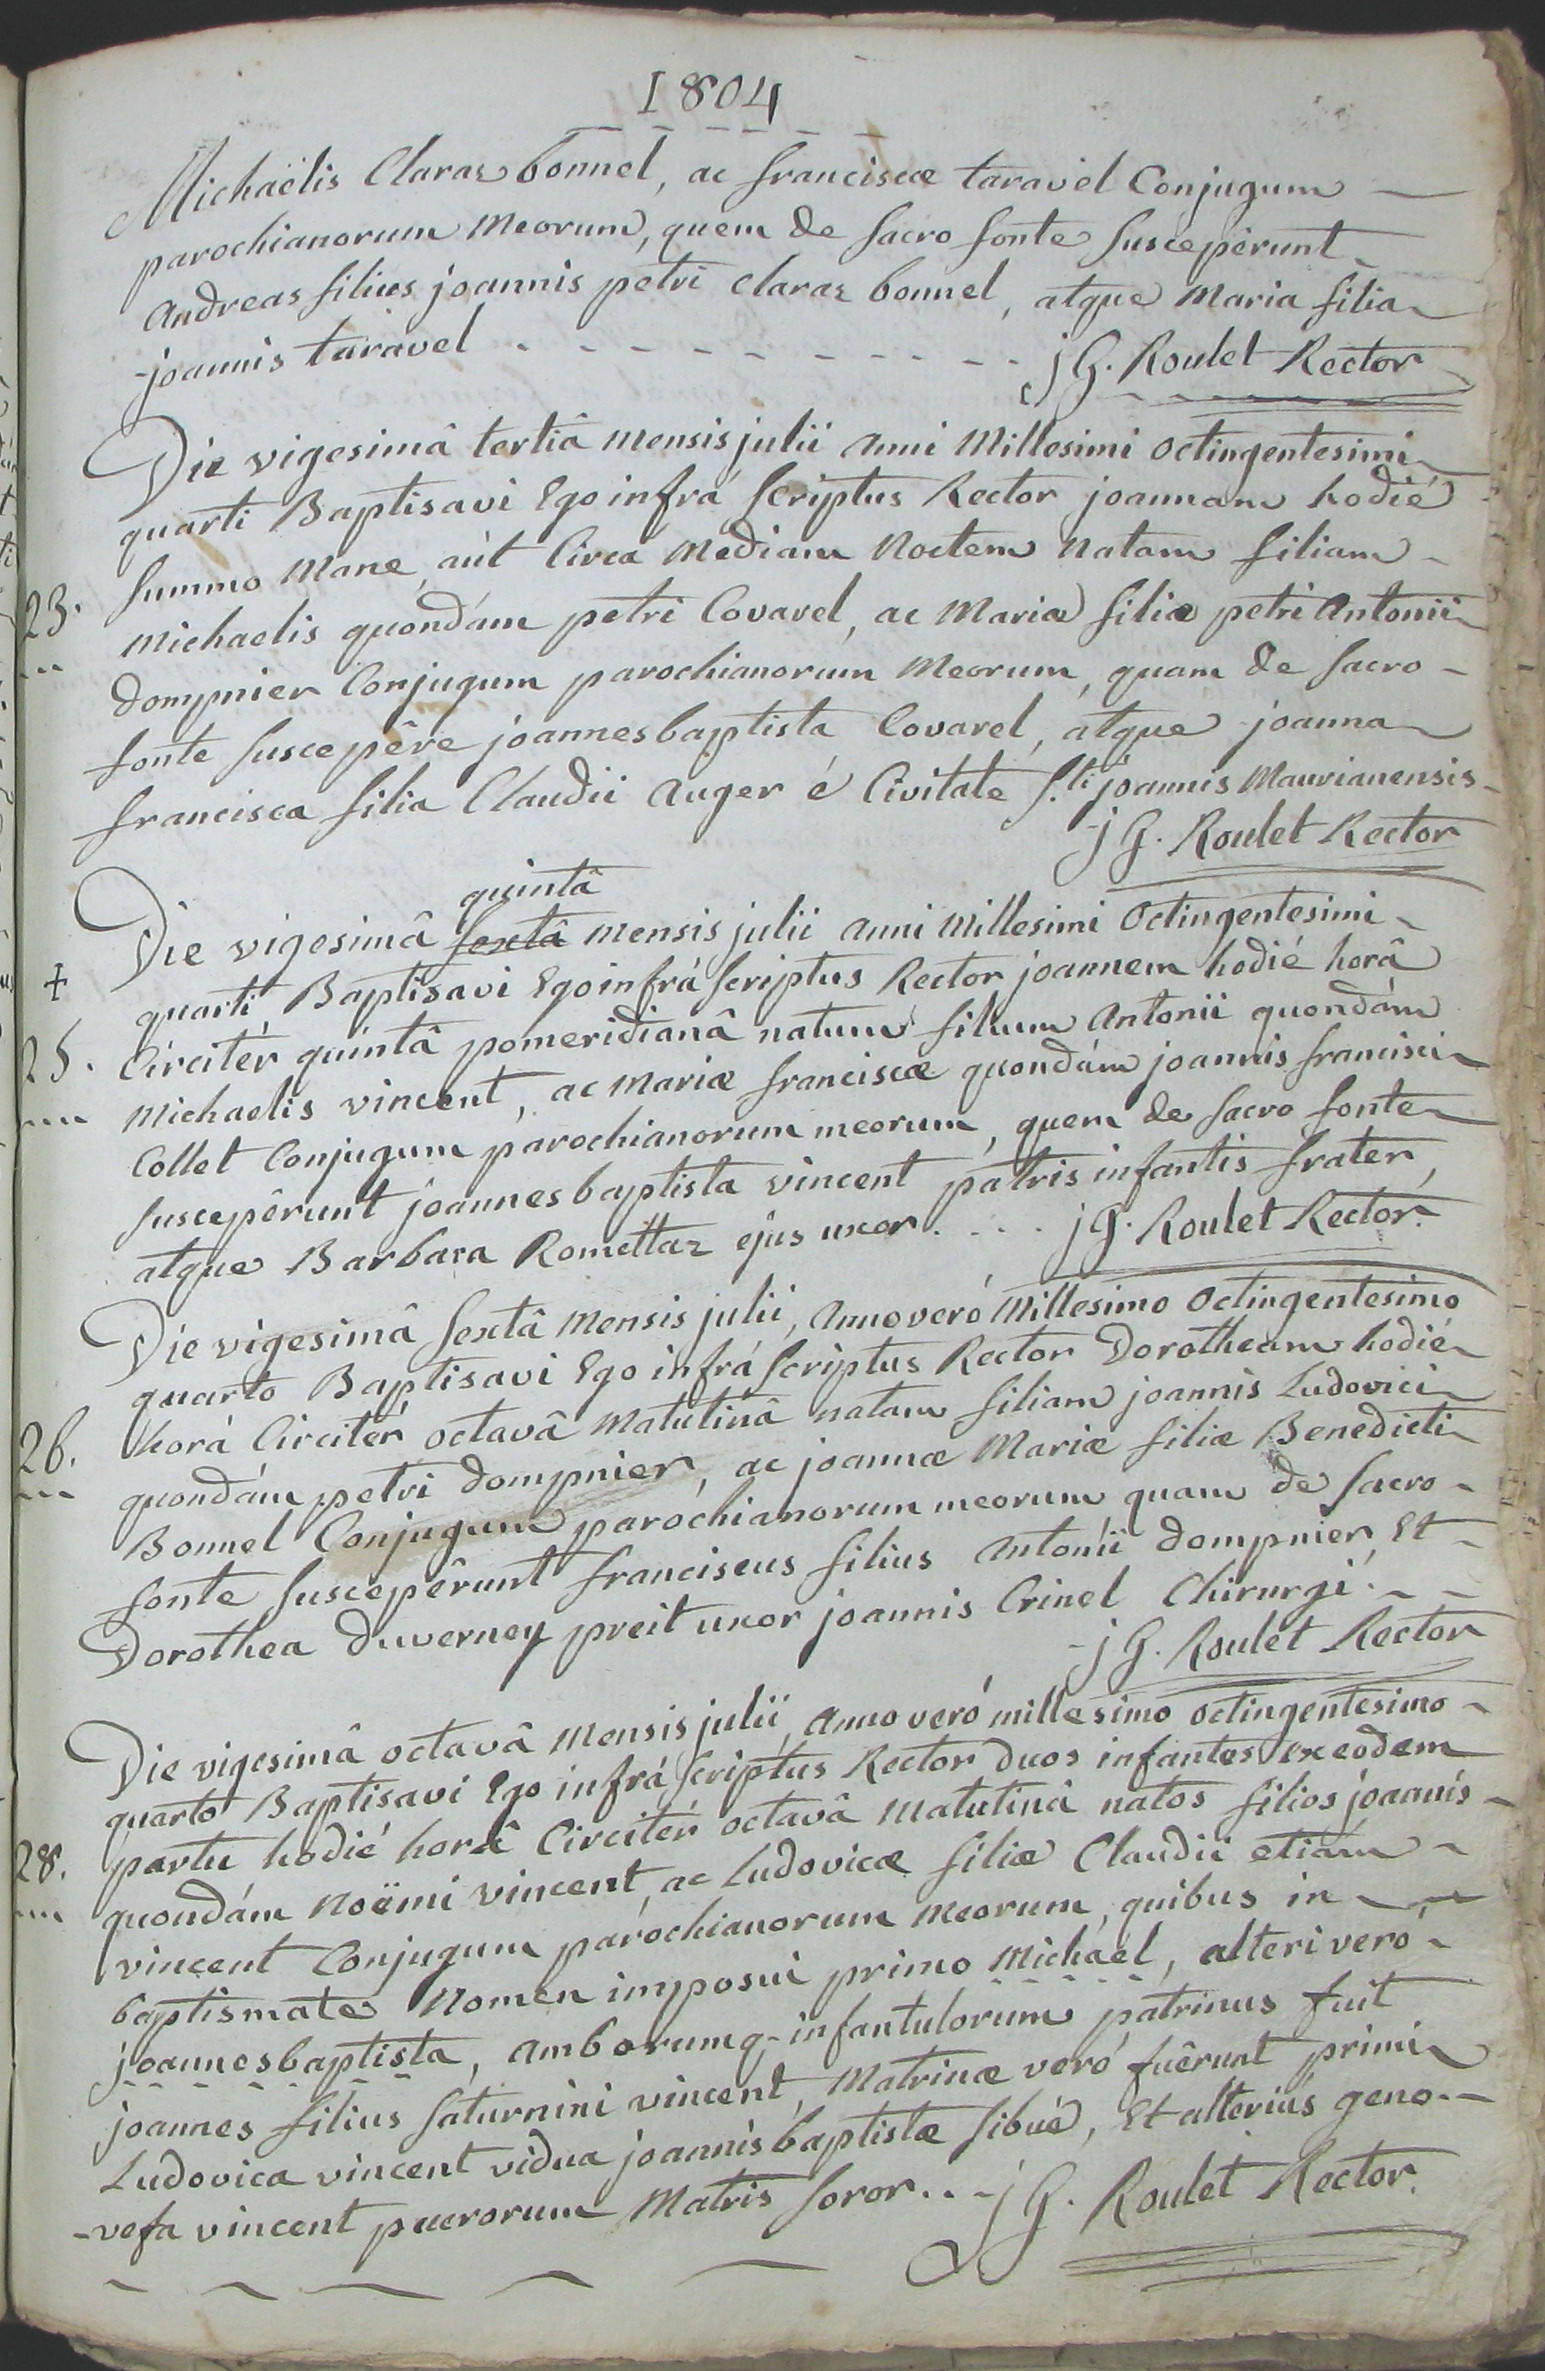 1804
Michaëlis Claraz bonnel, ac franciscæ taravel Conjugum
parochianorum Meorum, quem de sacro fonte suscepêrunt
Andreas filius joannis petri claraz bonnel, atque Maria filia
joannis taravel - - - - - - - - - - j G. Roulet Rector
Die vigesimâ tertiâ Mensis julii Anni Millesimi octingentesimi
quarti Baptisavi Ego infrá scriptus Rector joannam hodié
23. summo Mane, aút Circa Mediam Noctem Natam filiam
Michaelis quondám petri Covarel, ac Mariæ filiæ petri Antonii
dompnier Conjugum parochianorum Meorum, quam de sacro
fonte suscepêre joannes baptista Covarel, atque joanna
francisca filia Claudii Auger é Civitate s.ti joannis Maurianensis
j G. Roulet Rector
quintâ
Die vigesimâ sextâ Mensis julii Anni Millesimi Octingentesimi
+ quarti Baptisavi Ego infrá scriptus Rector joannem hodié horâ
25. Circitér quintâ pomeridianâ natum filium Antonii quondám
Michaelis vincent, ac Mariæ franciscæ quondám joannis francisci
Collet Conjugum parochianorum meorum, quem de sacro fonte
suscepêrunt joannes baptista vincent patris infantis frater,
atque Barbara Romettaz ejus uxor. . . . j G. Roulet Rector.
Die vigesimâ sextâ Mensis julii, Anno veró Millesimo Octingentesimo
quarto Baptisavi Ego infrá scriptus Rector Dorotheam hodié
26. horâ Circitér octavâ Matutinâ natam filiam joannis Ludovici
quondám petri dompnier, ac joannæ Mariæ filiæ Benedicti
Bonnel Conjugum parochianorum meorum quam de sacro
fonte suscepêrunt franciscus filius Antonii dompnier, Et
Dorothea duverney preit uxor joannis Crinel Chirurgi.
j G. Roulet Rector
Die vigesimâ octavâ Mensis julii, Anno veró millesimo octingentesimo
quarto Baptisavi Ego infrá scriptus Rector duos infantes ex eodem
28. partu hodié horâ Circitér octavâ Matutinâ natos filios joannis
quondám Noëmi vincent, ac Ludovicæ filiæ Claudii etiám
vincent Conjugum parochianorum Meorum, quibus in
baptismate Nomen imposui primo Michaël, alteri veró
joannes baptista, Amborumq. infantulorum patrinus fuit
joannes filius saturnini vincent, Matrinæ veró fuêrunt primi
Ludovica vincent vidua joannis baptistæ sibué, Et alteriús geno-
-vefa vincent puerorum Matris soror. . - j G. Roulet Rector.